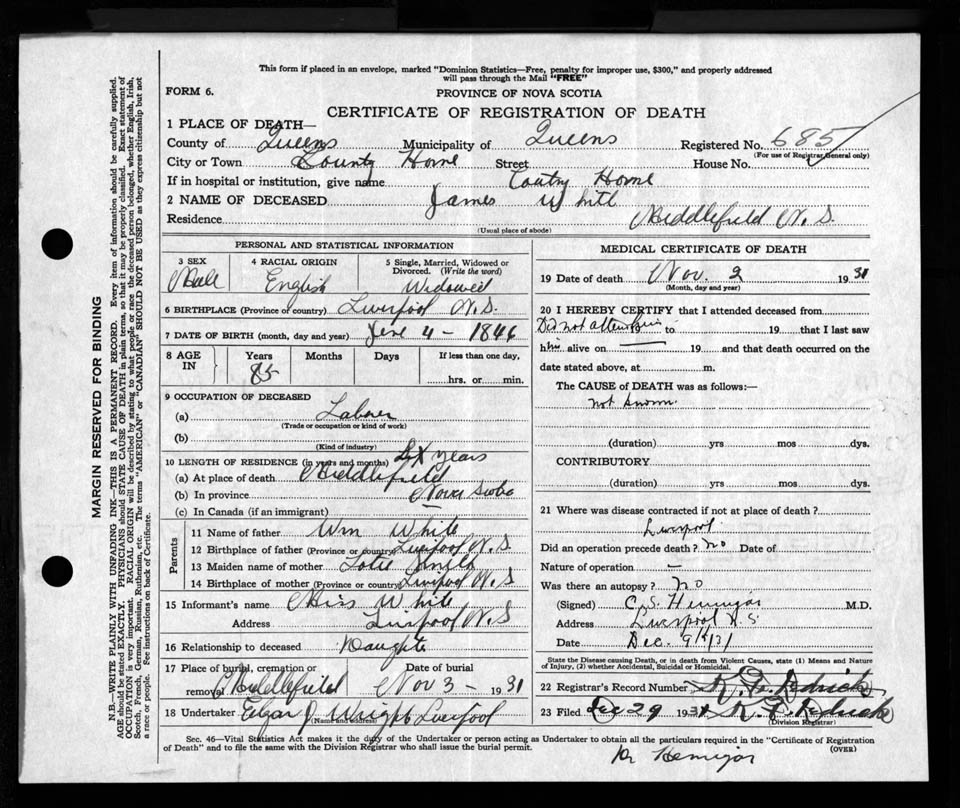 This form if placed in an envelope, marked "Dominion Statistics—Free, penalty for improper use, $300," and properly addressed
will pass through the Mail "FREE"
FORM 6.
PROVINCE OF NOVA SCOTIA
CERTIFICATE OF REGISTRATION OF DEATH
1 PLACE OF DEATH—
County of Queens Municipality of Queens Registered No. 685
(For use of Registrar General only)
City or Town County Home Street House No.
If in hospital or institution, give name County Home
2 NAME OF DECEASED James White
Residence Middlefield N.S.
(Usual place of abode)
MARGIN RESERVED FOR BINDING
N.B.—WRITE PLAINLY WITH UNFADING INK—THIS IS A PERMANENT RECORD. Every item of information should be carefully supplied.
AGE should be stated EXACTLY. PHYSICIANS should STATE CAUSE OF DEATH in plain terms, so that it may be properly classified. Exact statement of
OCCUPATION is very important. RACIAL ORIGIN will be described by stating to what people or race the deceased person belonged, whether English, Irish,
Scotch, French, German, Russian, Ruthenian, etc. The terms "AMERICAN" or "CANADIAN" SHOULD NOT BE USED as they express citizenship but not
a race or people. See instructions on back of Certificate.
PERSONAL AND STATISTICAL INFORMATION
3 SEX
Male
4 RACIAL ORIGIN
English
5 Single, Married, Widowed or
Divorced. (Write the word)
Widowed
6 BIRTHPLACE (Province or country) Liverpool N.S.
7 DATE OF BIRTH (month, day and year) 4 - 1846
8 AGE
IN
Years
85
Months
Days
If less than one day,
hrs. or min.
9 OCCUPATION OF DECEASED
(a) Laborer
(Trade or occupation or kind of work)
(b)
(Kind of industry)
10 LENGTH OF RESIDENCE (in years and months) years
(a) At place of death Middlefield
(b) In province Nova Scotia
(c) In Canada (if an immigrant)
Parents
11 Name of father Wm White
12 Birthplace of father (Province or country) Liverpool N.S.
13 Maiden name of mother Smith
14 Birthplace of mother (Province or country) Liverpool N.S
15 Informant's name Miss White
Address Liverpool N.S
16 Relationship to deceased Daughter
17 Place of burial, cremation or
removal Middlefield
Date of burial
Nov 3 - 1931
18 Undertaker Edgar J Wright Liverpool
(Name and address)
MEDICAL CERTIFICATE OF DEATH
19 Date of death Nov. 2 1931
(Month, day and year)
20 I HEREBY CERTIFY that I attended deceased from
Did not attend him to 19 that I last saw
him alive on 19 and that death occurred on the
date stated above, at m.
The CAUSE of DEATH was as follows:—
not known
(duration) yrs mos dys.
CONTRIBUTORY
(duration) yrs mos dys.
21 Where was disease contracted if not at place of death?
Liverpool
Did an operation precede death? no Date of
Nature of operation —
Was there an autopsy? no
(Signed) C. S. Hennigar M.D.
Address Liverpool N.S.
Date Dec. 9/31
State the Disease causing Death, or in death from Violent Causes, state (1) Means and Nature
of Injury, (2) whether Accidental, Suicidal or Homicidal.
22 Registrar's Record Number
23 Filed Dec 29 1931
(Division Registrar)
Sec. 46—Vital Statistics Act makes it the duty of the Undertaker or person acting as Undertaker to obtain all the particulars required in the "Certificate of Registration
of Death" and to file the same with the Division Registrar who shall issue the burial permit. (OVER)
Dr Hennigar